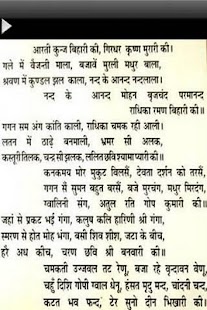 आरती कुन्ज बिहारी की, गिरधर कृष्ण मुरारी की।
गले में वैजन्ती माला, बजावें मुरली मधुर बाला,
श्रवण में कुण्डल झल काला, नन्द के आनन्द नन्दलाला।
नन्द के आनन्द मोहन बृजचंद परमानन्द
राधिका रमण बिहारी की।
गगन सम अंग कांति काली, राधिका चमक रही आली।
लतन में ठाढ़े बनमाली, भ्रमर सी अलक,
कस्तूरी तिलक, चन्द्र सी झलक, ललित छवि श्यामा प्यारी की।
कनकमय मोर मुकुट विलसैं, देवता दर्शन को तरसैं,
गगन सैं सुमन बहुत बरसैं, बजे मुरचंग, मधुर मिरदंग,
ग्वालिनी संग, अतुल रति गोप कुमारी की।
जहां से प्रकट भई गंगा, कलुष कलि हारिणी श्री गंगा,
स्मरण से होत मोह भंगा, बसी शिव शीश, जटा के बीच,
हरै अध कीच, चरण छवि श्री बनवारी की।
चमकती उज्जवल तट रेणू, बजा रहे वृन्दावन वेणू,
चहुँ दिशि गोपी ग्वाल धेनू, हंसत मृदु मन्द, चांदनी चन्द,
कटत भव फन्द, टेर सुनो दीन भिखारी की।